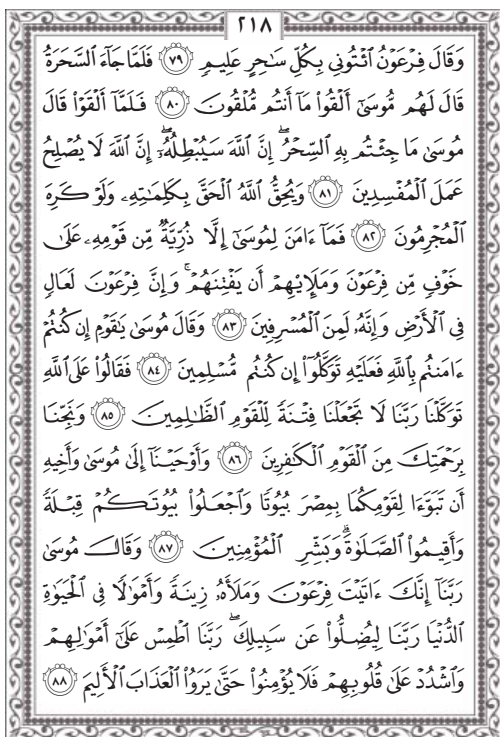 ٢١٨
وَقَالَ فِرْعَوْنُ ٱئْتُونِى بِكُلِّ سَـٰحِرٍ عَلِيمٍ ٧٩ فَلَمَّا جَآءَ ٱلسَّحَرَةُ
قَالَ لَهُم مُّوسَىٰٓ أَلْقُوا۟ مَآ أَنتُم مُّلْقُونَ ٨٠ فَلَمَّآ أَلْقَوْا۟ قَالَ
مُوسَىٰ مَا جِئْتُم بِهِ ٱلسِّحْرُ ۖ إِنَّ ٱللَّهَ سَيُبْطِلُهُۥٓ ۖ إِنَّ ٱللَّهَ لَا يُصْلِحُ
عَمَلَ ٱلْمُفْسِدِينَ ٨١ وَيُحِقُّ ٱللَّهُ ٱلْحَقَّ بِكَلِمَـٰتِهِۦ وَلَوْ كَرِهَ
ٱلْمُجْرِمُونَ ٨٢ فَمَآ ءَامَنَ لِمُوسَىٰٓ إِلَّا ذُرِّيَّةٌ مِّن قَوْمِهِۦ عَلَىٰ
خَوْفٍ مِّن فِرْعَوْنَ وَمَلَإِي۟هِمْ أَن يَفْتِنَهُمْ ۚ وَإِنَّ فِرْعَوْنَ لَعَالٍ
فِى ٱلْأَرْضِ وَإِنَّهُۥ لَمِنَ ٱلْمُسْرِفِينَ ٨٣ وَقَالَ مُوسَىٰ يَـٰقَوْمِ إِن كُنتُمْ
ءَامَنتُم بِٱللَّهِ فَعَلَيْهِ تَوَكَّلُوٓا۟ إِن كُنتُم مُّسْلِمِينَ ٨٤ فَقَالُوا۟ عَلَى ٱللَّهِ
تَوَكَّلْنَا رَبَّنَا لَا تَجْعَلْنَا فِتْنَةً لِّلْقَوْمِ ٱلظَّـٰلِمِينَ ٨٥ وَنَجِّنَا
بِرَحْمَتِكَ مِنَ ٱلْقَوْمِ ٱلْكَـٰفِرِينَ ٨٦ وَأَوْحَيْنَآ إِلَىٰ مُوسَىٰ وَأَخِيهِ
أَن تَبَوَّءَا لِقَوْمِكُمَا بِمِصْرَ بُيُوتًا وَٱجْعَلُوا۟ بُيُوتَكُمْ قِبْلَةً
وَأَقِيمُوا۟ ٱلصَّلَوٰةَ ۗ وَبَشِّرِ ٱلْمُؤْمِنِينَ ٨٧ وَقَالَ مُوسَىٰ
رَبَّنَآ إِنَّكَ ءَاتَيْتَ فِرْعَوْنَ وَمَلَأَهُۥ زِينَةً وَأَمْوَٰلًا فِى ٱلْحَيَوٰةِ
ٱلدُّنْيَا رَبَّنَا لِيُضِلُّوا۟ عَن سَبِيلِكَ ۖ رَبَّنَا ٱطْمِسْ عَلَىٰٓ أَمْوَٰلِهِمْ
وَٱشْدُدْ عَلَىٰ قُلُوبِهِمْ فَلَا يُؤْمِنُوا۟ حَتَّىٰ يَرَوُا۟ ٱلْعَذَابَ ٱلْأَلِيمَ ٨٨